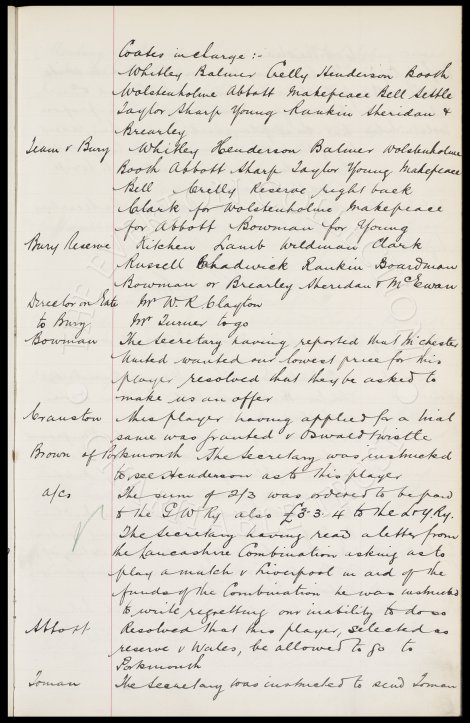 Coates in charge :-
Whitley Balmer Crelly Henderson Booth
Wolstenholme Abbott Makepeace Bell Settle
Taylor Sharp Young Rankin Sheridan &
Brearley
Team v Bury Whitley Henderson Balmer Wolstenholme
Booth Abbott Sharp Taylor Young Makepeace
Bell Crelly Reserve right back
Clark for Wolstenholme Makepeace
for Abbott Bowman for Young
Bury Reserve Kitchen Lamb Wildman Clark
Russell Chadwick Rankin Boardman
Bowman or Brearley Sheridan & McEwan
Director on Gate Mr W. R Clayton
to Bury Mr Turner to go
Bowman The Secretary having reported that M'chester
United wanted our lowest price for this
player resolved that they be asked to
make us an offer
Cranston This player having applied for a trial
same was granted v Oswaldtwistle
Brown of Portsmouth The Secretary was instructed
to see Henderson as to this player
a/cs The sum of 2/3 was ordered to be paid
to the G W Ry also £3-3-4 to the L & Y. Ry.
The Secretary having read a letter from
the Lancashire Combination asking as to
play a match v Liverpool in aid of the
funds of the Combination he was instructed
to write regretting our inability to do so
Abbott Resolved that this player, selected as
reserve v Wales, be allowed to go to
Portsmouth
Toman The Secretary was instructed to send Toman